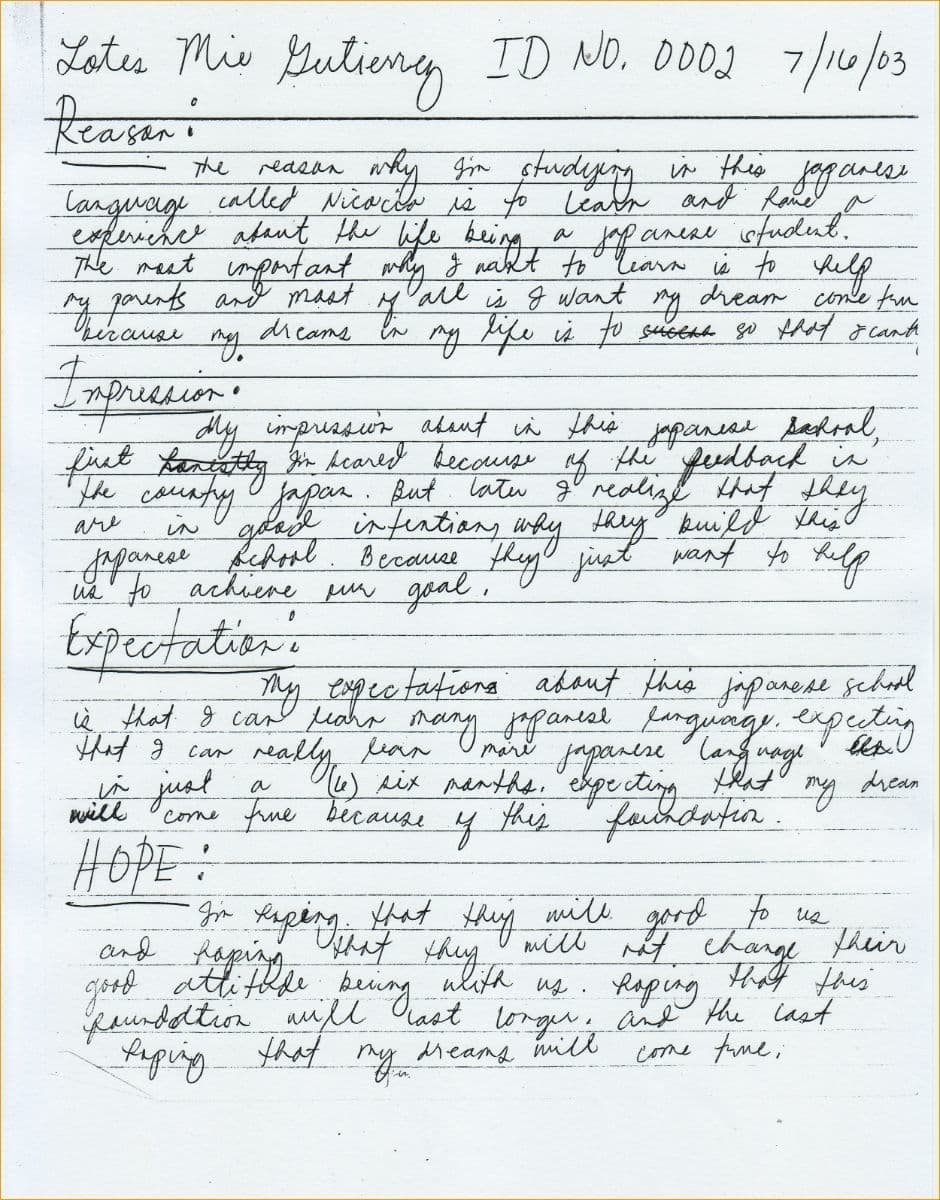 Lotes Mie Gutierrez ID NO. 0002 7/16/03
Reason:
The reason why I'm studying in this japanese
language called Nicacio is to learn and have a
experience about the life being a japanese student.
The most important why I want to learn is to help
my parents and most of all is I want my dream come true
because my dreams in my life is to so that I can
Impression:
My impression about in this japanese school,
first honestly I'm scared because of the feedback in
the country japan. But later I realize that they
are in good intentions why they build this
japanese school. Because they just want to help
us to achieve our goal.
Expectation:
My expectations about this japanese school
is that I can learn many japanese language. expecting
that I can really learn more japanese language
in just a (6) six months. expecting that my dream
will come true because of this foundation.
HOPE:
I'm hoping that they will good to us
and hoping that they will not change their
good attitude being with us. hoping that this
foundation will last longer. and the last
hoping that my dreams will come true.